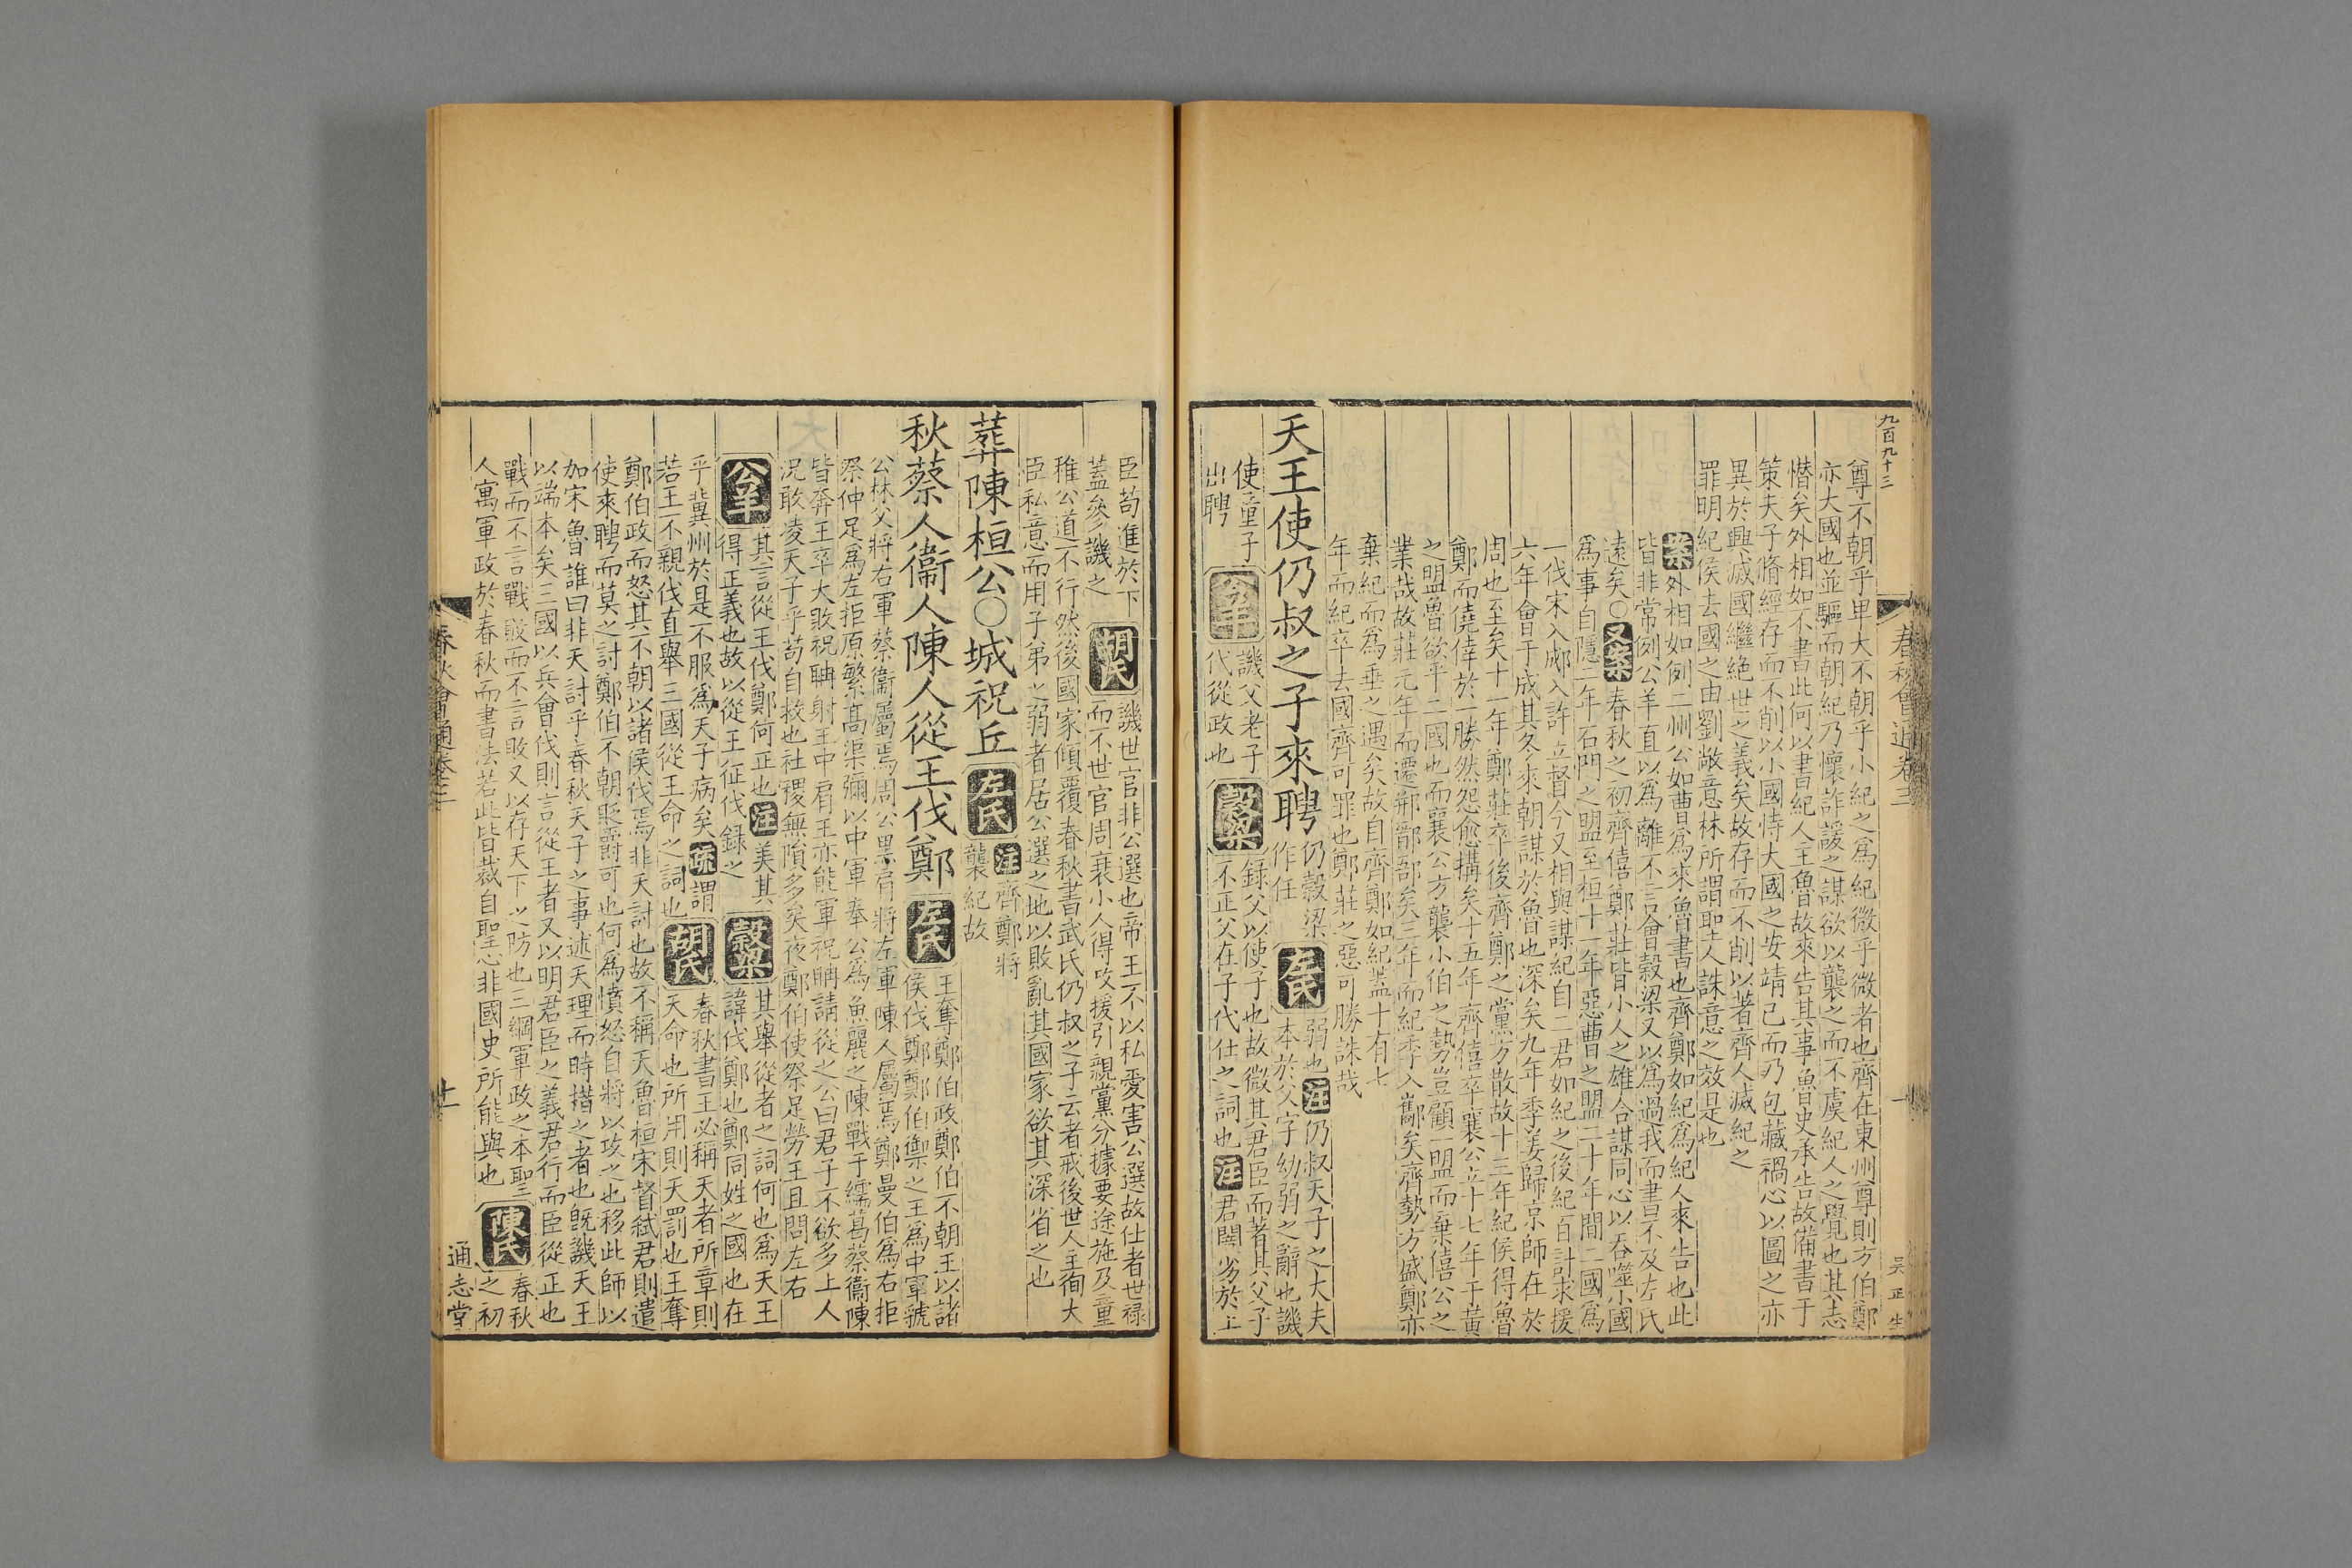 九百九十三
春秋會通卷三
吴正生
尊不朝乎卑大不朝乎小紀之爲紀微乎微者也齊在東州尊則方伯鄭
亦大國也並驅而朝紀乃懷詐諼之謀欲以襲之而不虞紀人之覺也其志
憯矣外相如不書此何以書紀人主魯故來告其事魯史承告故備書于
策夫子脩經存而不削以小國恃大國之安靖己而乃包藏禍心以圖之亦
異於興滅國繼絶世之義矣故存而不削以著齊人滅紀之
罪明紀侯去國之由劉敞意林所謂聖人誅意之效是也
案外相如例二州公如曹爲來魯書也齊鄭如紀爲紀人來告也此
皆非常例公羊直以爲離不言會穀梁又以爲過我而書畧不及左氏
遠矣○又案春秋之初齊僖鄭莊皆小人之雄合謀同心以吞噬小國
爲事自隱二年石門之盟至桓十一年惡曹之盟二十年間二國爲
一伐宋入郕入許立督今又相與謀紀自二君如紀之後紀百計求援
六年會于成其冬來朝謀於魯也深矣九年季姜歸京師在於
周也至矣十一年鄭莊卒後齊鄭之黨方散故十三年紀侯得魯
鄭而僥倖於一勝然怨愈搆矣十五年齊僖卒襄公立十七年于黃
之盟魯欲平二國也而襄公方襲小伯之勢豈顧一盟而棄僖公之
業哉故莊元年而遷郱鄑郚矣三年而紀季入酅矣齊勢方盛鄭亦
棄紀而爲垂之遇矣故自齊鄭如紀蓋十有七
年而紀卒去國齊可罪也鄭莊之惡可勝誅哉
天王使仍叔之子來聘
仍穀梁
作任
左氏
弱也注仍叔天子之大夫
本於父字幼弱之辭也譏
使童子
出聘
公羊
譏父老子
代從政也
穀梁
録父以使子也故微其君臣而著其父子
不正父在子代仕之詞也注君闇劣於上
臣苟進於下
蓋參譏之
胡氏
譏世官非公選也帝王不以私愛害公選故仕者世禄
而不世官周衰小人得政援引親黨分據要途施及童
稚公道不行然後國家傾覆春秋書武氏仍叔之子云者戒後世人主徇大
臣私意而用子弟之弱者居公選之地以敗亂其國家欲其深省之也
葬陳桓公○城祝丘
左氏
注齊鄭將
襲紀故
秋蔡人衞人陳人從王伐鄭
左氏
王奪鄭伯政鄭伯不朝王以諸
侯伐鄭鄭伯禦之王爲中軍虢
公林父將右軍蔡衞屬焉周公黑肩將左軍陳人屬焉鄭曼伯爲右拒
祭仲足爲左拒原繁高渠彌以中軍奉公爲魚麗之陳戰于繻葛蔡衞陳
皆奔王卒大敗祝聃射王中肩王亦能軍祝聃請從之公曰君子不欲多上人
況敢凌天子乎苟自救也社稷無隕多矣夜鄭伯使祭足勞王且問左右
公羊
其言從王伐鄭何正也注美其
得正義也故以從王征伐録之
穀梁
其舉從者之詞何也爲天王
諱伐鄭也鄭同姓之國也在
乎冀州於是不服爲天子病矣疏謂
若王不親伐直舉三國從王命之詞也
胡氏
春秋書王必稱天者所章則
天命也所用則天罰也王奪
鄭伯政而怒其不朝以諸侯伐焉非天討也故不稱天魯桓宋督弑君則遣
使來聘而莫之討鄭伯不朝貶爵可也何爲憤怒自將以攻之也移此師以
加宋魯誰曰非天討乎春秋天子之事述天理而時措之者也既譏天王
以端本矣三國以兵會伐則言從王者又以明君臣之義君行而臣從正也
戰而不言戰敗而不言敗又以存天下之防也三綱軍政之本聖
人寓軍政於春秋而書法若此皆裁自聖心非國史所能與也
陳氏
春秋
之初
春秋會通卷三
十一
通志堂